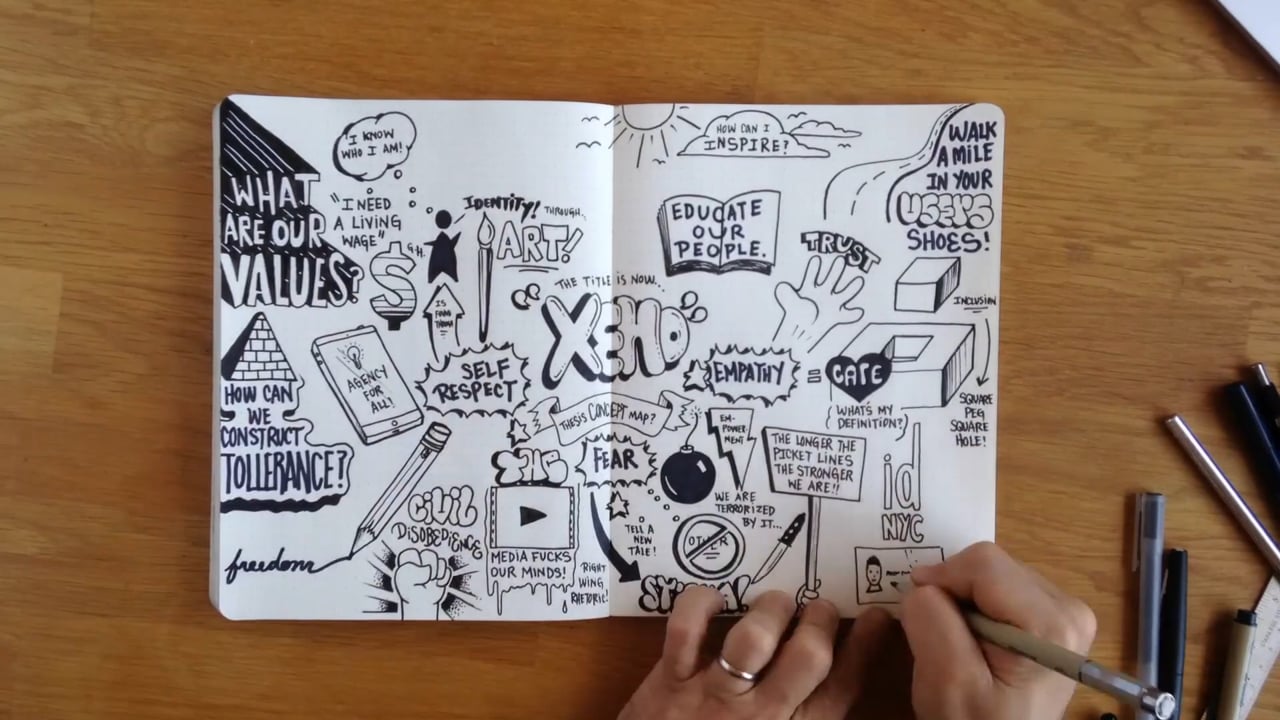 WHAT
ARE OUR
VALUES?
I KNOW
WHO I AM!
"I NEED
A LIVING
WAGE"
$
IDENTITY!
THROUGH...
ART!
HOW CAN
WE
CONSTRUCT
TOLLERANCE?
AGENCY
FOR
ALL!
SELF
RESPECT
freedom
CIVIL
DISOBEDIENCE
MEDIA FUCKS
OUR MINDS!
RIGHT
WING
RHETORIC!
THE TITLE IS NOW...
XENO
THESIS CONCEPT MAP?
FEAR
TELL A
NEW
TALE!
HOW CAN I
INSPIRE?
EDUCATE
OUR
PEOPLE.
TRUST
WALK
A MILE
IN YOUR
USERS
SHOES!
INCLUSION
SQUARE
PEG
SQUARE
HOLE!
EMPATHY
=
CARE
WHAT'S MY
DEFINITION?
EM-
POWER-
MENT
WE ARE
TERRORIZED
BY IT...
THE LONGER THE
PICKET LINES
THE STRONGER
WE ARE!!
OTHER
id
NYC